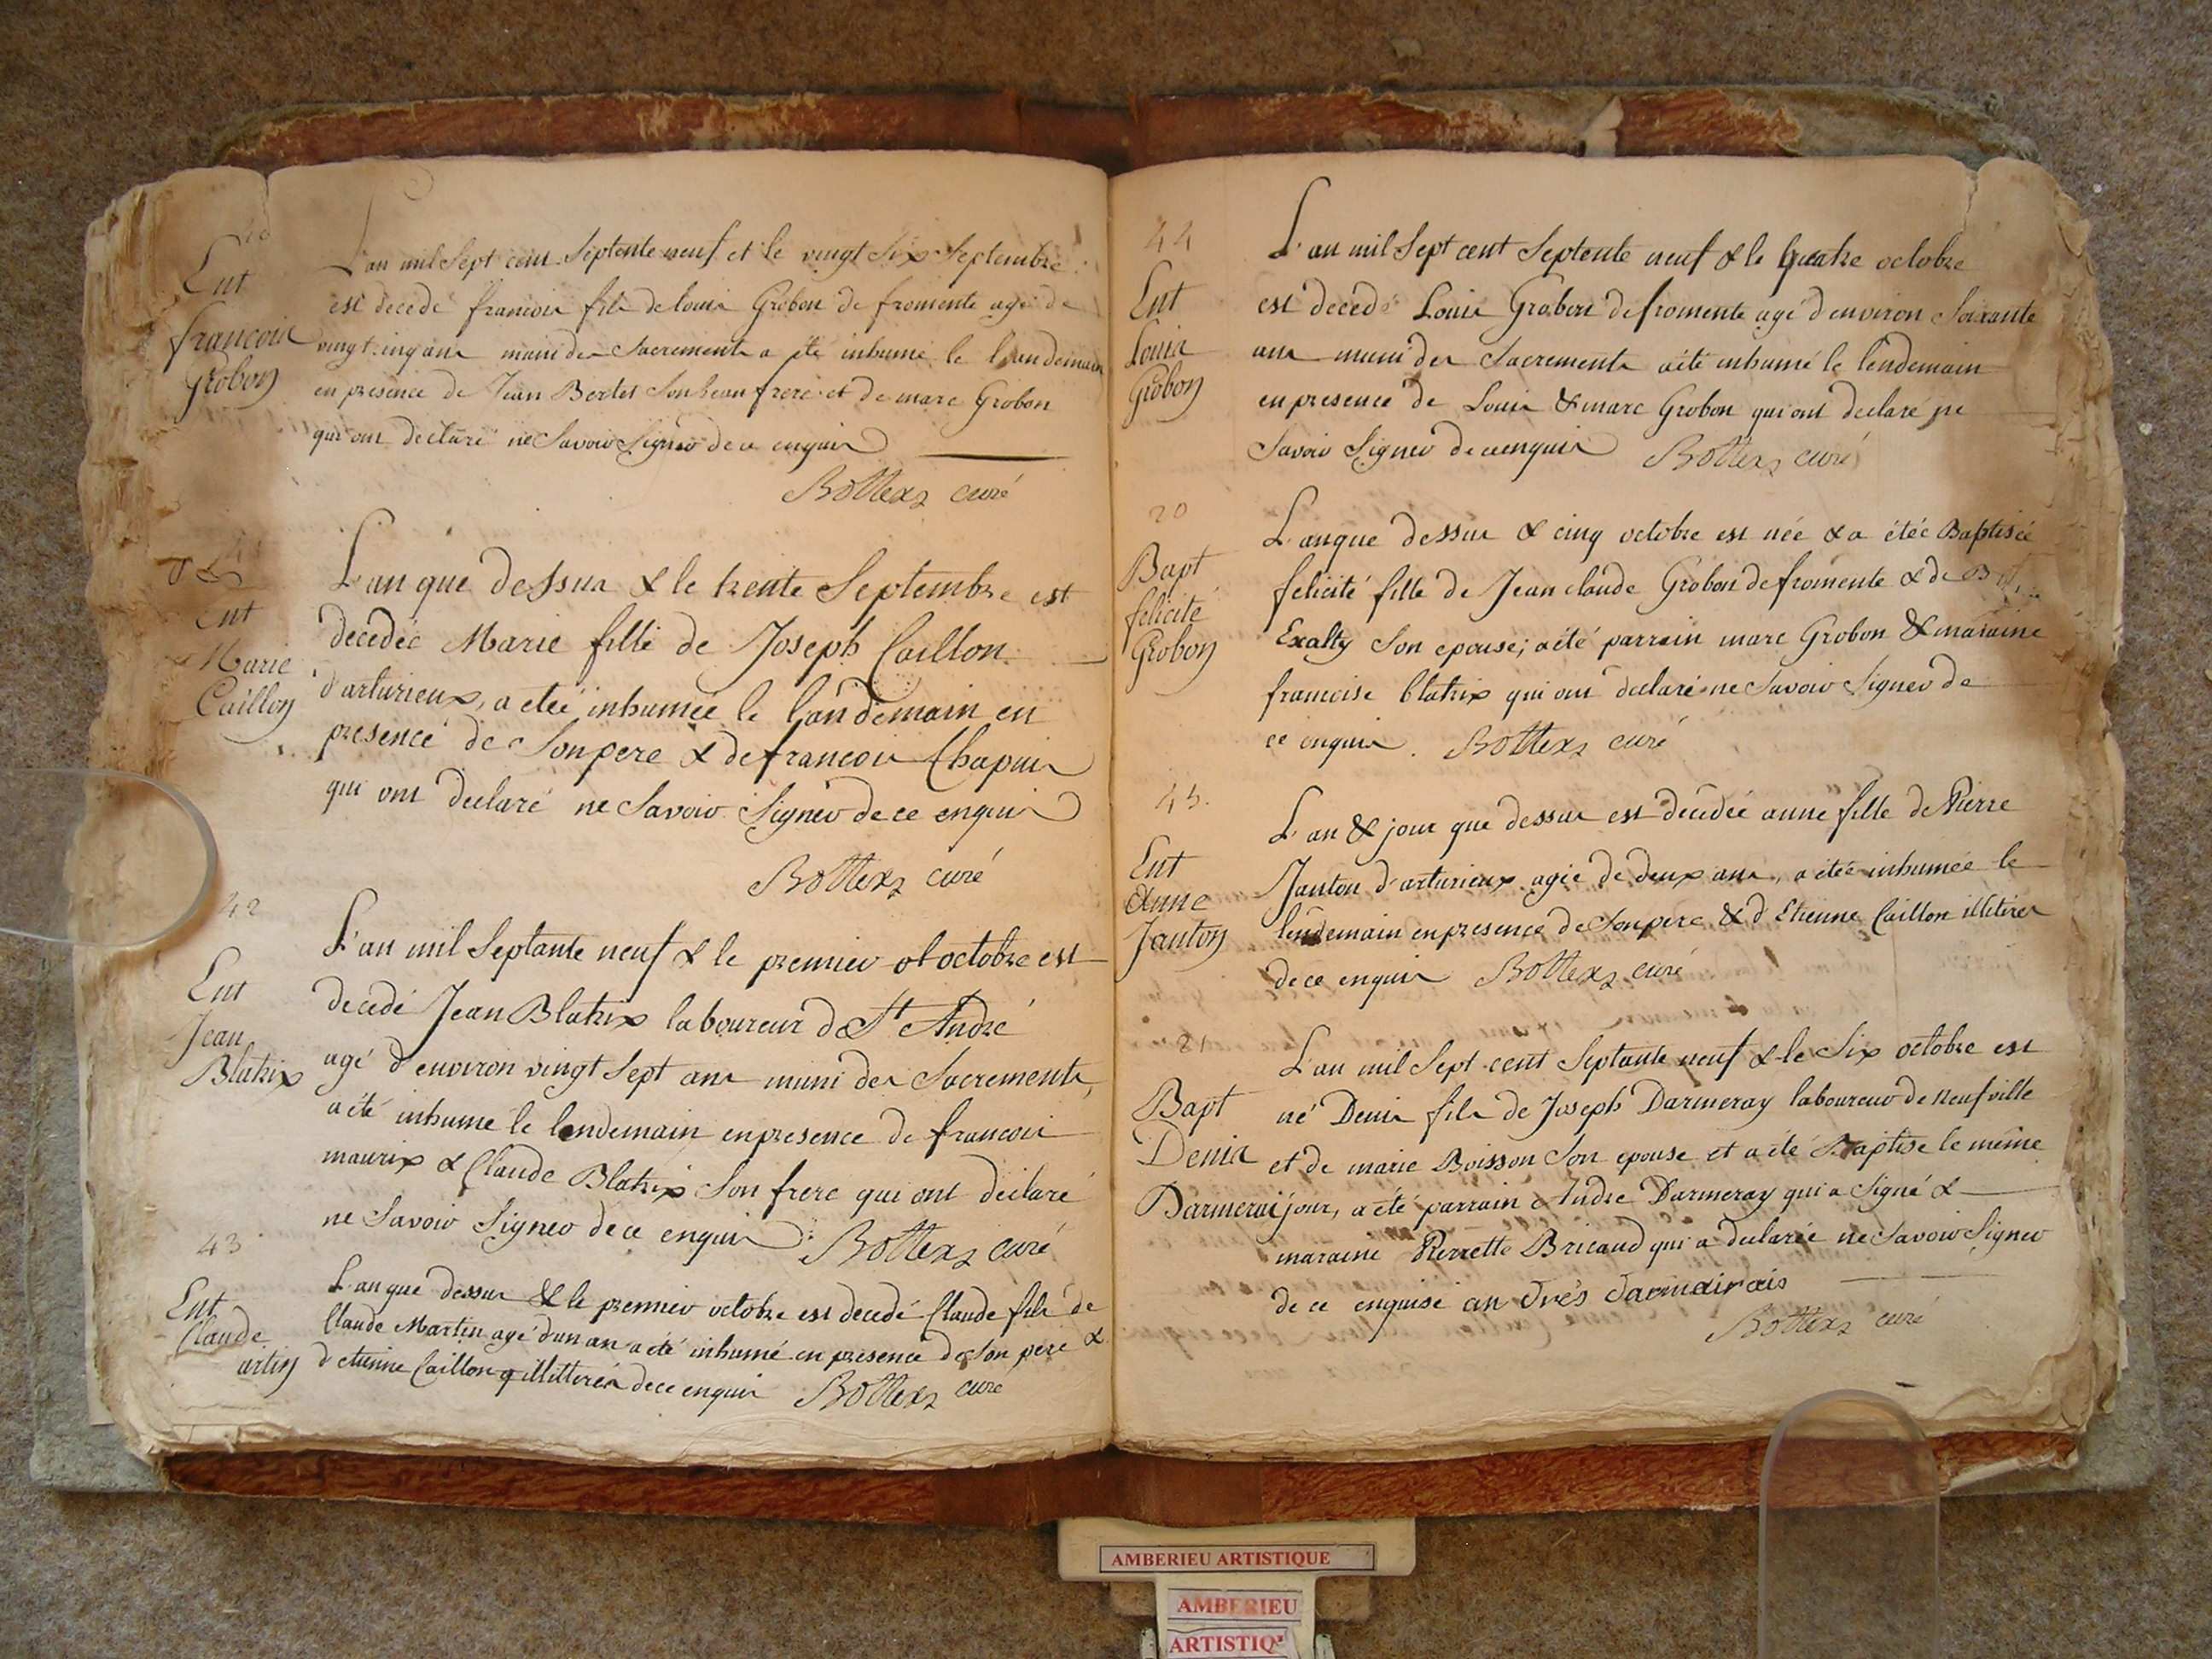 Ent
francois
Grobon
L'an mil Sept cent Septente neuf et le vingt Six Septembre
est decedé francois fils de louis Grobon de fromente agé de
vingt cinq ans muni des Sacrements a été inhumé le landemain
en presence de Jean Bertet Son beau frere et de marc Grobon
qui ont declaré ne Savoir Signer de ce enquis
Bottex curé
41
Ent
Marie
Caillon
L'an que dessus & le trente Septembre est
decedée Marie fille de Joseph Caillon
d'arturieux, a eteé inhumée le landemain en
presence de Son pere & de francois Chapuis
qui ont declaré ne Savoir Signer de ce enquis
Bottex curé
42
Ent
Jean
Blatrix
L'an mil Septante neuf & le premier octobre est
decedé Jean Blatrix laboureur de St André
agé d'environ vingt Sept ans muni des Sacrements,
a été inhumé le lendemain en presence de francois
maurix & Claude Blatrix Son frere qui ont déclaré
ne Savoir Signer de ce enquis Bottex curé
43
Ent
Claude
artin
L'an que dessus & le premier octobre est decedé Claude fils de
Claude Martin agé d'un an a été inhumé en presence de Son pere &
d'etienne Caillon illitterés de ce enquis Bottex curé
44
Ent
Louis
Grobon
L'an mil Sept cent Septente neuf & le quatre octobre
est decedé Louis Grobon de fromente agé d'environ Soixante
ans muni des Sacrements a été inhumé le lendemain
en presence de Louis & marc Grobon qui ont declaré ne
Savoir Signer de ce enquis Bottex curé
20
Bapt
felicité
Grobon
L'an que dessus & cinq octobre est née & a étée Baptisée
felicité fille de Jean claude Grobon de fromente & de
Exalty Son epouse; a été parrain marc Grobon & maraine
francoise blatrix qui ont declaré ne Savoir Signer de
ce enquis. Bottex curé
45.
Ent
Anne
Janton
L'an & jour que dessus est décédée anne fille de Pierre
Janton d'arturieux agée de deux ans, a étée inhumée le
lendemain en presence de Son pere & d'Etienne Caillon illiterés
de ce enquis Bottex curé
21
Bapt
Denis
Darmerai
L'an mil Sept cent Septante neuf & le Six octobre est
né Denis fils de Joseph Darmeray laboureur de neufville
et de marie Boisson Son epouse et a été Baptise le même
jour, a été parrain Andre Darmeray qui a Signé &
maraine Pierrette Bricaud qui a declarée ne Savoir Signer
de ce enquise an drés darmairais
Bottex curé
AMBERIEU ARTISTIQUE
AMBERIEU
ARTISTIQ